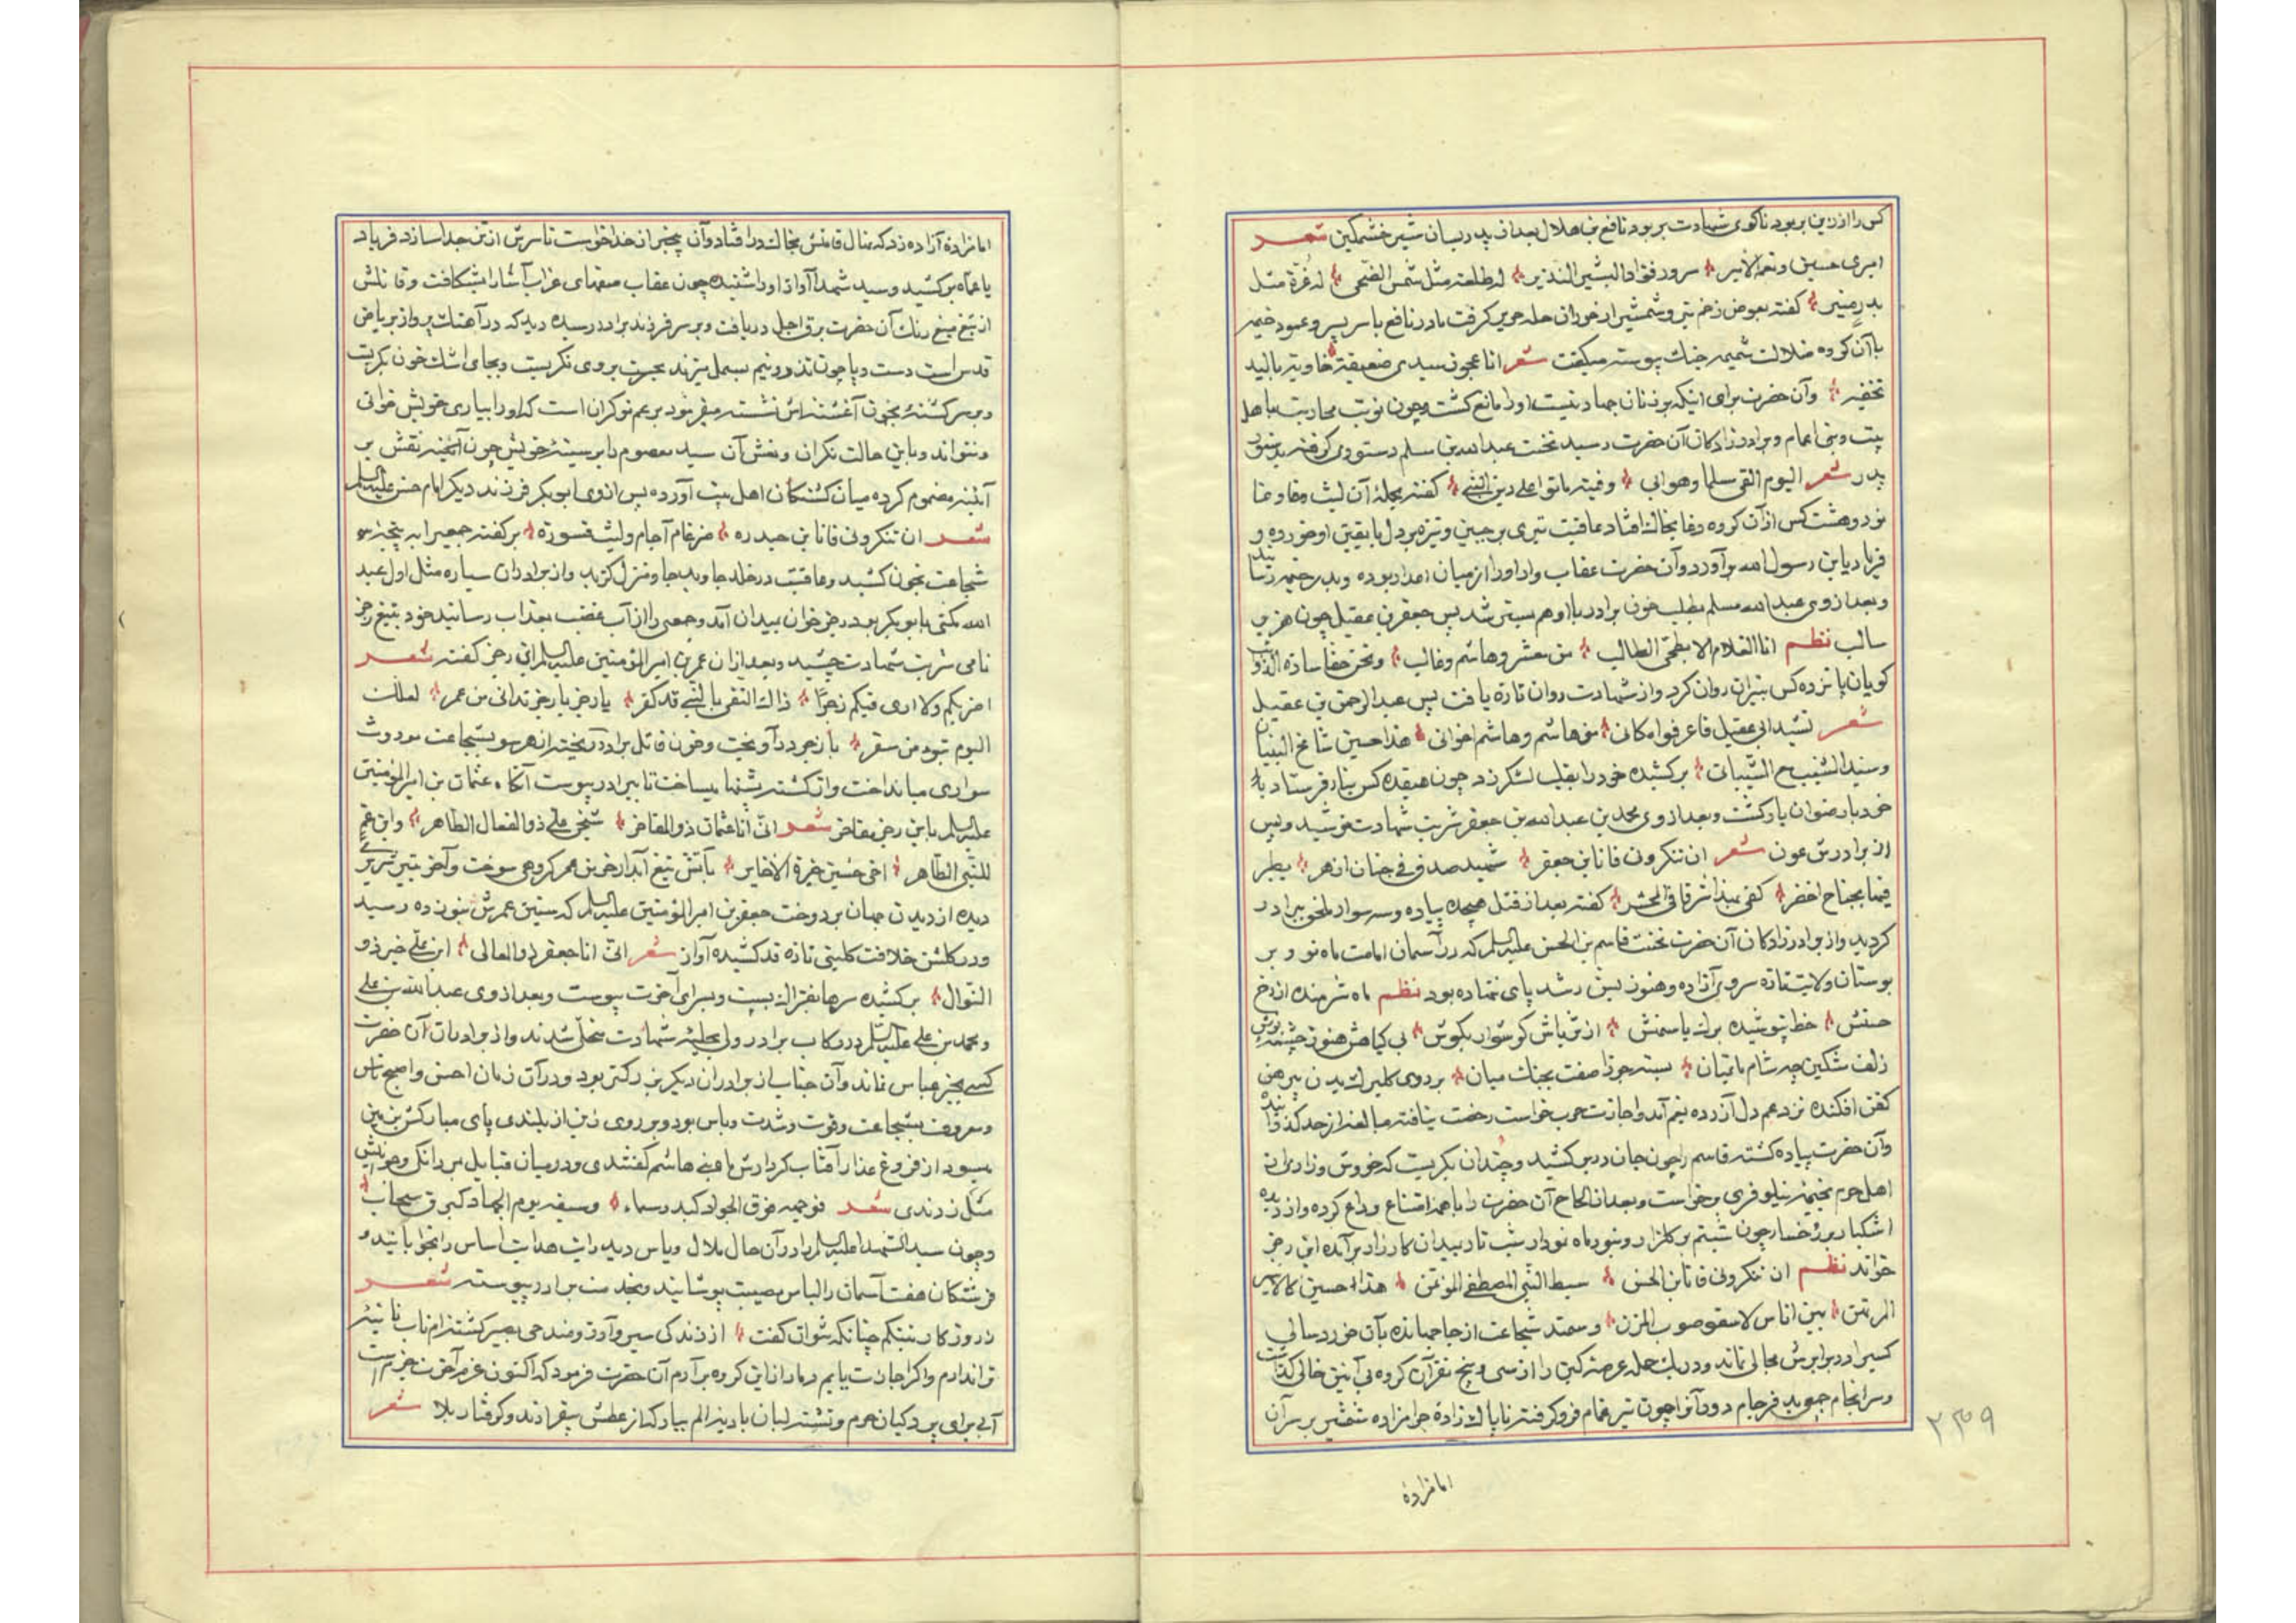 کس را از زین بربود تا کوی شهادت بربود نافع بن هلال بعد از پدر بسان شیر خشمگین شعر
امیری حسین ونعم الامیر سرور فؤاد البشیر النذیر له طلعة مثل شمس الضحی له غرة مثل
بدر منیر کفته بعوض زخم تیر وشمشیر از خوران حله حریر کرفت مادر نافع با سر پسر وعمود خیمه
با آن کروه ضلالت شمیمه جنك پیوسته میکفت شعر انا عجوز سیدی ضعیفة خاویة بالیة
نحیفه وآن حضرت برای اینکه بر زنان جهاد نیست اورا مانع کشت وچون نوبت محاربت باهل
بیت وبنی اعمام وبرادرزادکان آن حضرت رسید نخست عبدالله بن مسلم دستوری کرفته
پدر شعر الیوم القی مسلما وهو ابی وفتیة ماتوا علی دین النبی کفته بحمله آن لیث وغا
نود وهشت کس از آن کروه دغا بخاك افتاد عاقبت تیری بر جبین ونیزه بر دل با یقین او خورده و
فریاد یا ابن رسول الله برآورد وآن حضرت عقاب وار اورا از میان اعدا ربوده وبدر خیمه رسانید
وبعد از وی عبدالله مسلم بطلب خون برادر با او هم بستر شد پس جعفر بن عقیل چون هزبر
سالب نظم انا الغلام الابطحی الطالب من معشر وهاشم وغالب ونحن حقا سادة الذوائب
کویان پانزده کس بنیران روان کرد واز شهادت روان تازه یافت پس عبدالرحمن بن عقیل
شعر ابی عقیل فاعرفوا مکانی من هاشم وهاشم اخوانی هذا حسین شامخ البنیان
وسید الشیب مع الشبان برکشیده خود را بقلب لشکر زد چون هفده کس بنار فرستاد
خود بار ضوان یار کشت وبعد از وی محمد بن عبدالله بن جعفر شربت شهادت نوشید وپس
از برادرش عون شعر ان تنکرونی فانا ابن جعفر شهید صدق فی جنان ازهر یطیر
فیها بجناح اخضر کفی بهذا شرفا فی المحشر کفته بعد از قتل هیجده پیاده وسه سوار ملحق ببرادر
کردید واز برادرزادکان آن حضرت نخست قاسم بن الحسن علیه السلم که در آسمان امامت ماه نو و بر
بوستان ولایت تازه سروی آزاده وهنوز بسن رشد پای ننهاده بود نظم ماه شرمنده از رخ
حسنش خط نپوشیده برك یاسمنش
زلف مشکین چه شام ماتمیان بسته جوزا صفت بجنك میان بر روی پیرهن
کفن افکنده نزد عم دل آزرده نیم آمد واجازت حرب خواست رخصت نیافته مبالغه از حد کذرانید
وآن حضرت پیاده کشته قاسم را چون جان در بر کشید وچندان بکریست که خروش وزاری از
اهل حرم بخیمه نیلوفری برخواست وبعد از الحاح آن حضرت را با همه امتناع وداع کرده واز دیده
اشکبار بر رخسار چون شبنم بر کلزار ونور ماه نو در شب تار بمیدان کارزار برآمده این رجز
خواند نظم ان تنکرونی فانا ابن الحسن سبط النبی المصطفی المؤتمن هذا حسین کالاسیر
المرتهن بین اناس لا سقوا صوب المزن وسمند شجاعت از جا جهانده بآن خوردسالی
کسیرا در برابرش مجالی نماند ودر یك حمله عرصه کین را از سی وپنج نفر آن کروه بی آئین خالی کذاشت
وسرانجام فرجام ازدی چون تیر غمام فرو کرفته ناپاك زاده حرامزاده شمشیر بر سر آن
٢٣٥٩
امامزاده
امامزاده آزاده زد که نهال قامتش بخاك در افتاد وآن بیخبر از خدا خواست تا سرش از تن جدا سازد فریاد
یا عماه برکشید وسید شهدا آواز او را شنیده چون عقاب صفهای غراب آشا را بشکافت وقاتلش
از تیغ میغ رنك آن حضرت برق اجل دریافت وبر سر فرزند برادر رسیده دید که در آهنك پرواز بریاض
قدس است دست وپا چون تذرو نیم بسمل میزند بحسرت بروی نکریست وبجای اشك خون بکریست
وبر سر کشته بخون آغشته اش نشسته میفرمود بر عم تو کران است که اورا بیاری خویش خوانی
ونتواند وباین حالت نکران ونعش آن سید معصوم را بر سینه خویش چون آئینه نقش بر
آئینه مضموم کرده میان کشتکان اهل بیت آورده پس از وی ابوبکر فرزند دیکر امام حسن علیه السلم
شعر ان تنکرونی فانا ابن حیدره ضرغام آجام ولیث قسورة بر کفته جمعیرا به پنجه
شجاعت بخون کشید وعاقبت در خلد جاوید جا ومنزل کزید واز برادران سیاره مثل اول عبد
الله مکنی بابوبکر بود رجز خوان بمیدان آمد وجمعی را از آب غضب بعذاب رسانید خود بتیغ زجر
نامی شربت شهادت چشید وبعد از آن عمر بن امیر المؤمنین علیه السلم این رجز کفته شعر
اضربکم ولا اری فیکم زجرا ذاك الشقی بالنبی قد کفر یا زجر یا زجر تدانی من عمر لعلك
الیوم تبوء من سقر با زجر درآویخت وخون قاتل برادر ریخته از هر سو بشجاعت موروث
سواری میانداخت واز کشته پشتها میساخت تا ببرادر پیوست آنکاه عثمان بن امیر المؤمنین
علیه السلم باین رجز مفاخر شعر انی انا عثمان ذو المفاخر شیخی علی ذو الفعال الطاهر وابن عم
للنبی الطاهر اخی حسین خیرة الاخایر بآتش تیغ آبدار خرمن عمر کروهی سوخت وآخر بتیر تیزپر
دیده از دیدن جهان بردوخت جعفر بن امیر المؤمنین علیه السلم که سنین عمرش بنوزده رسید
ودر کلشن خلافت کلبنی تازه قد کشیده آواز شعر انی انا جعفر ذو المعالی ابن علی خیر ذو
النوال برکشیده سرها بفتراك ببست وبسرای آخرت پیوست وبعد از وی عبدالله بن علی
ومحمد بن علی علیه السلم در رکاب برادر ولی بحلیه شهادت متحلی شدند واز برادران آن حضرت
کسی بجز عباس نماند وآن جناب از برادران دیکر بزرکتر بود ودر آن زمان احسن واصبح ناس
ومعروف بشجاعت وقوت وشدت وباس بود وبر روی زین از بلندی پای مبارکش بزمین
میسود از فروغ عذار آفتاب کردارش ماه بنی هاشم کفتندی ودر میان قبایل بمردانکی
مثل زدندی شعر فوجهه فوق الجواد کبدر سماء وسیفه یوم الجهاد کبرق سحاب
وچون سید الشهدا علیه السلم را در آن حال ملال ویاس دید رایت هدایت اساس را بخوابانید و
فرشتکان هفت آسمان را لباس مصیبت پوشانید وبخدمت برادر پیوسته شعر
در روزکار تنکم چنانکه نتوان کفت از زندکی سیر
اندارم واکر اجازت یابم دمار از این کروه برآرم آن حضرت فرمود که اکنون عزم آخرت جزمست
آبی برای پردکیان حرم وتشنه لبان بادیه الم بیار که از عطش بیقرارند وکرفتار بلا شعر